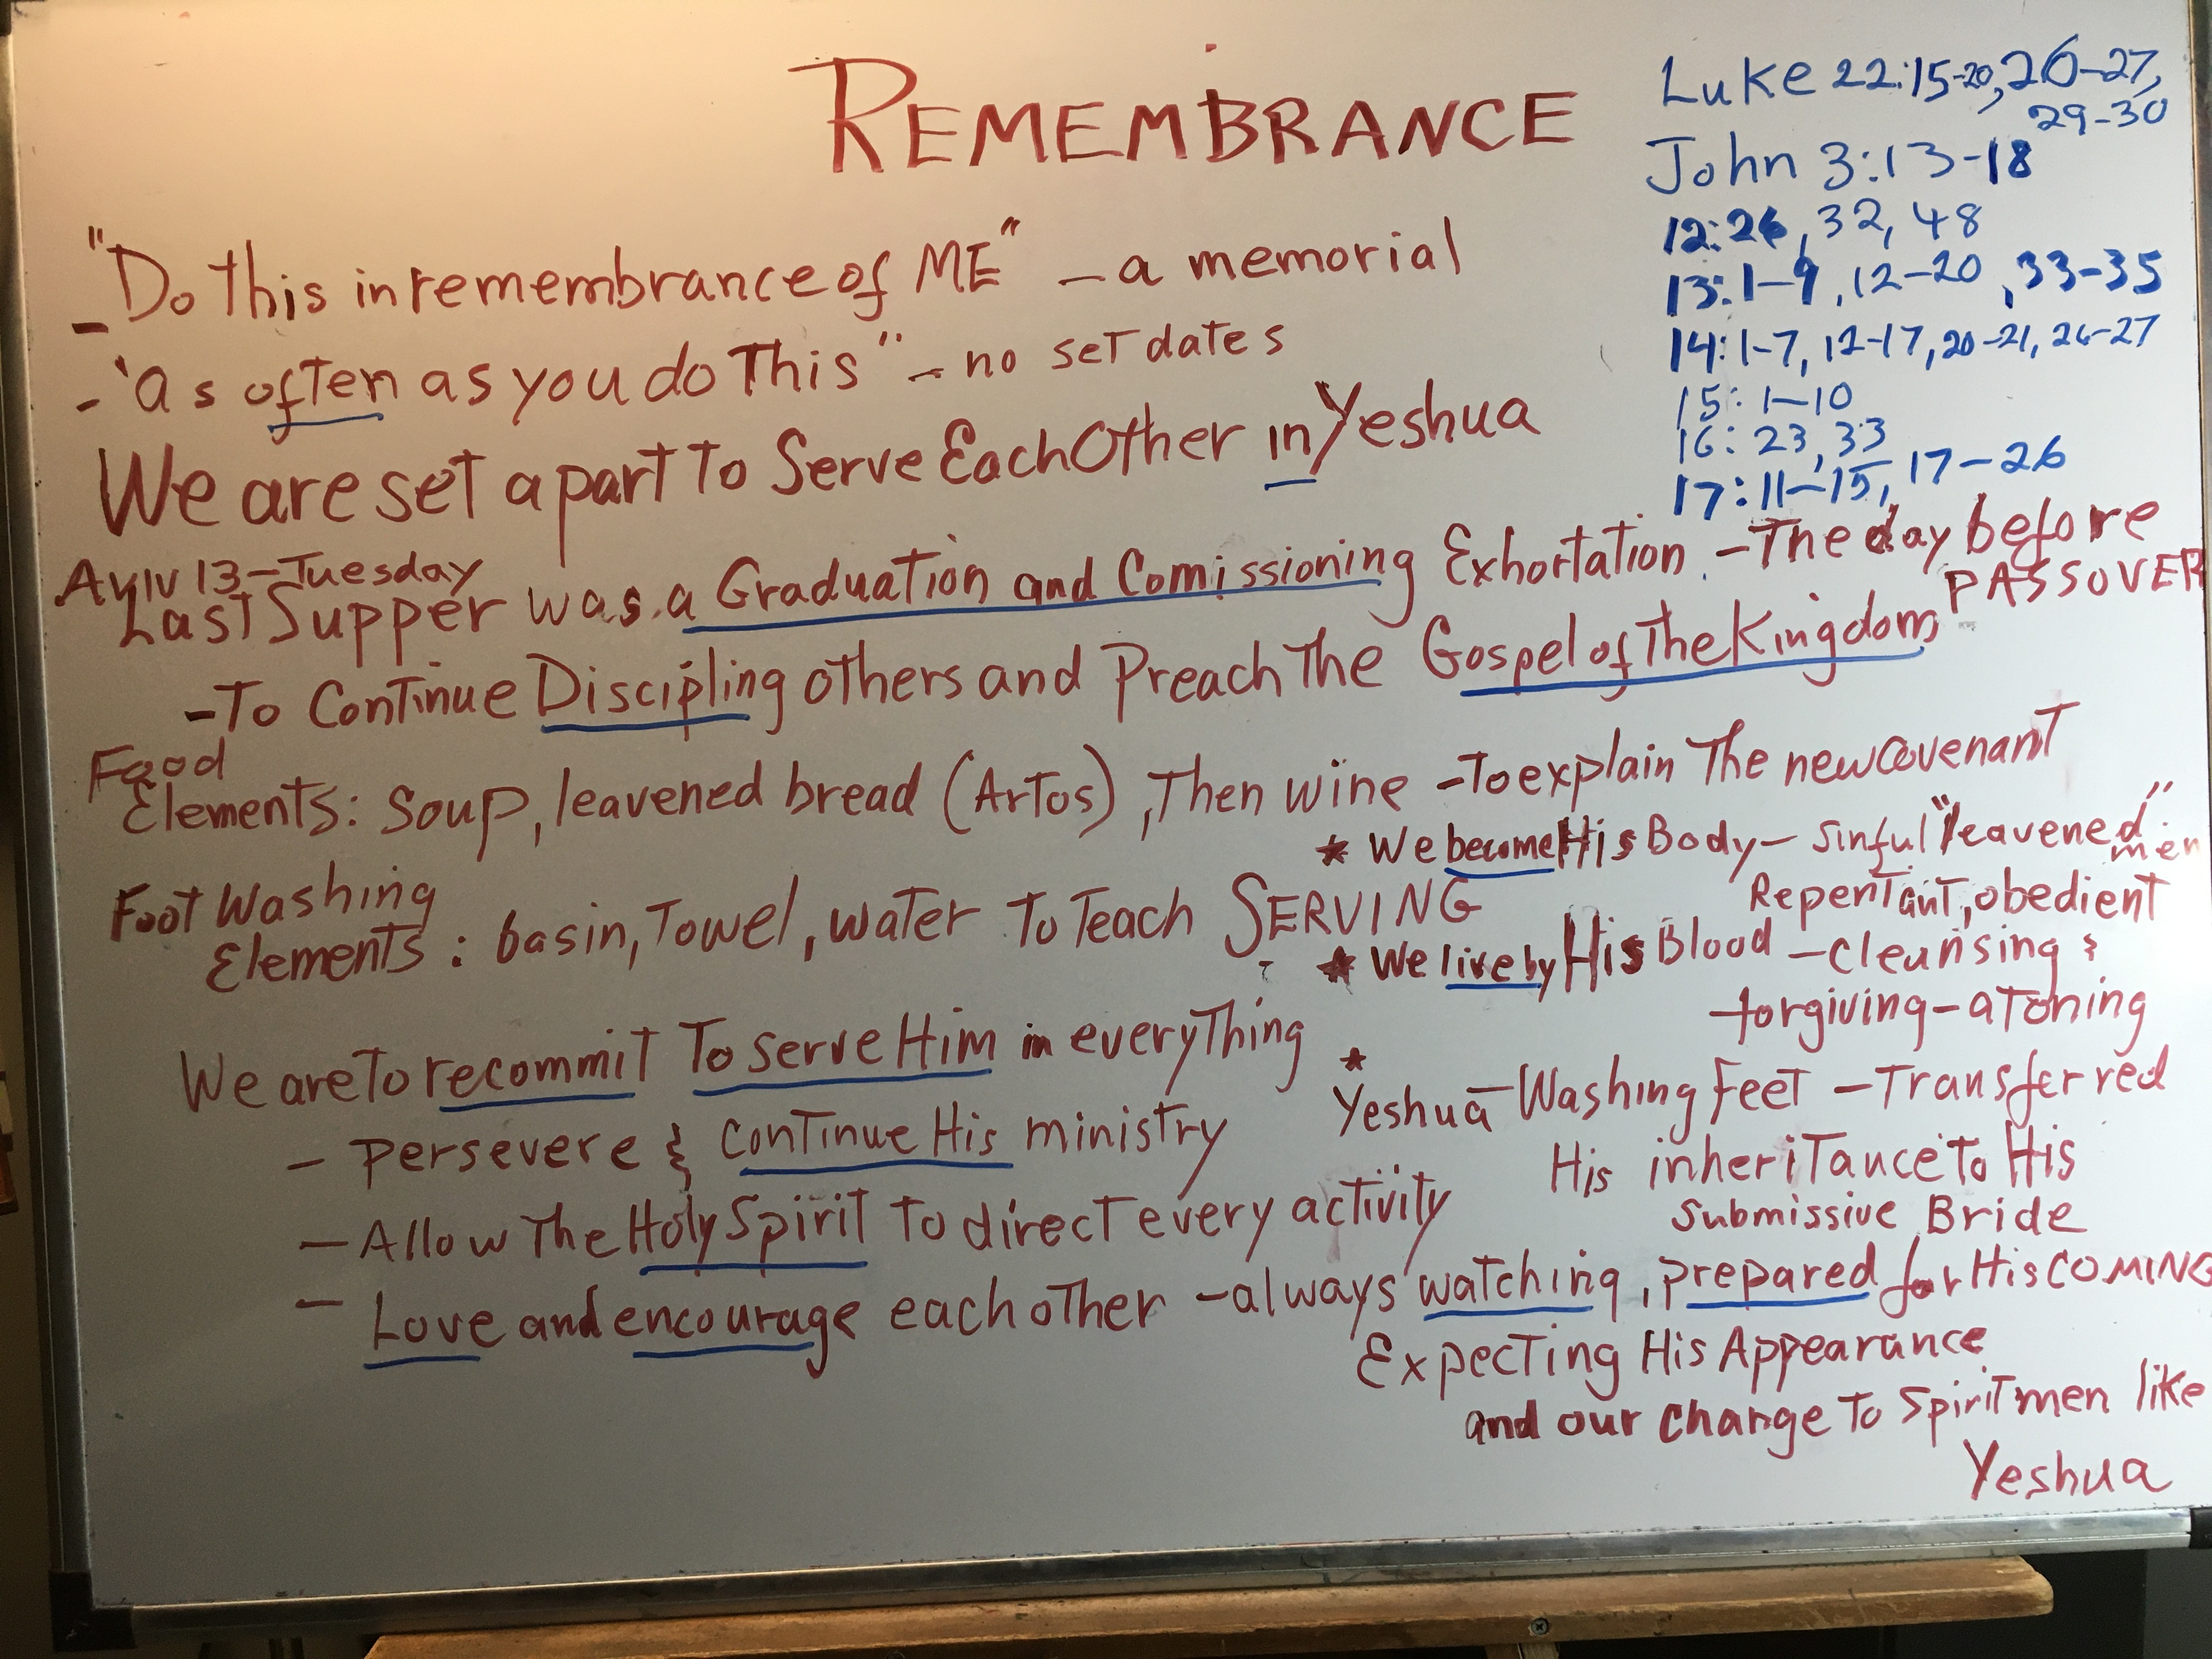 REMEMBRANCE
Luke 22:15-20, 26-27,
29-30
John 3:13-18
12:26, 32, 48
13:1-9, 12-20, 33-35
14:1-7, 12-17, 20-21, 26-27
15:1-10
16:23, 33
17:11-15, 17-26
- "Do This in remembrance of ME" - a memorial
- 'as often as you do This" - no set dates
We are set apart To Serve Each Other in Yeshua
Aviv 13-Tuesday
Last Supper was a Graduation and Comissioning Exhortation - The day before
PASSOVER
-To Continue Discipling others and Preach The Gospel of The Kingdom
Food
Elements: Soup, leavened bread (Artos), Then wine -To explain The new covenant
* We become His Body - sinful "leavened"
men
Repentant, obedient
Foot Washing
Elements: basin, Towel, water To Teach SERVING
* We live by His Blood - cleansing &
forgiving - atoning
We are To recommit To serve Him in everything
- persevere & continue His ministry
- Allow The Holy Spirit To direct every activity
*
Yeshua - Washing Feet - Transferred
His inheritance To His
Submissive Bride
- Love and encourage each other - always watching, prepared for His COMING
Expecting His Appearance
and our change To Spirit men like
Yeshua